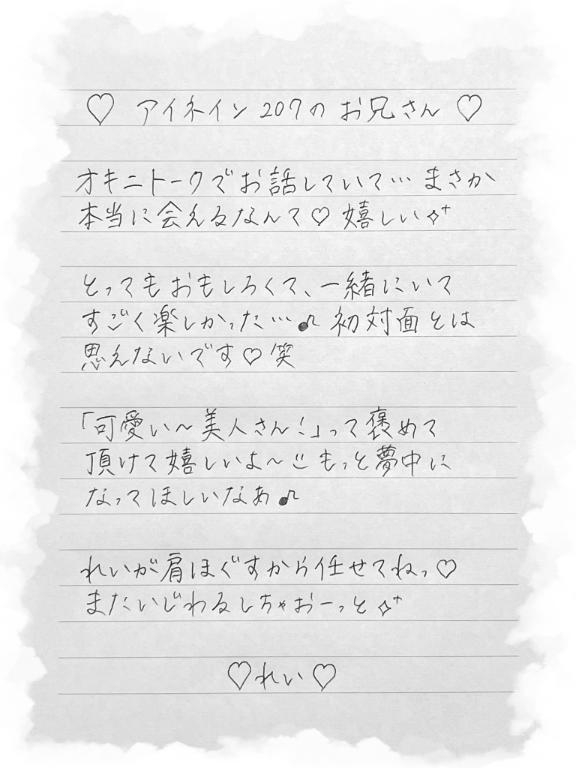 ♡ アイネイン207のお兄さん ♡
オキニトークでお話していて… まさか
本当に会えるなんて♡ 嬉しい✧⁺
とってもおもしろくて、一緒にいて
すごく楽しかった…♪ 初対面とは
思えないです♡笑
「可愛い〜美人さん!」って褒めて
頂けて嬉しいよ〜 もっと夢中に
なってほしいなあ♪
れいが肩ほぐすから任せてねっ♡
またいじわるしちゃおーっと✧⁺
♡れい♡